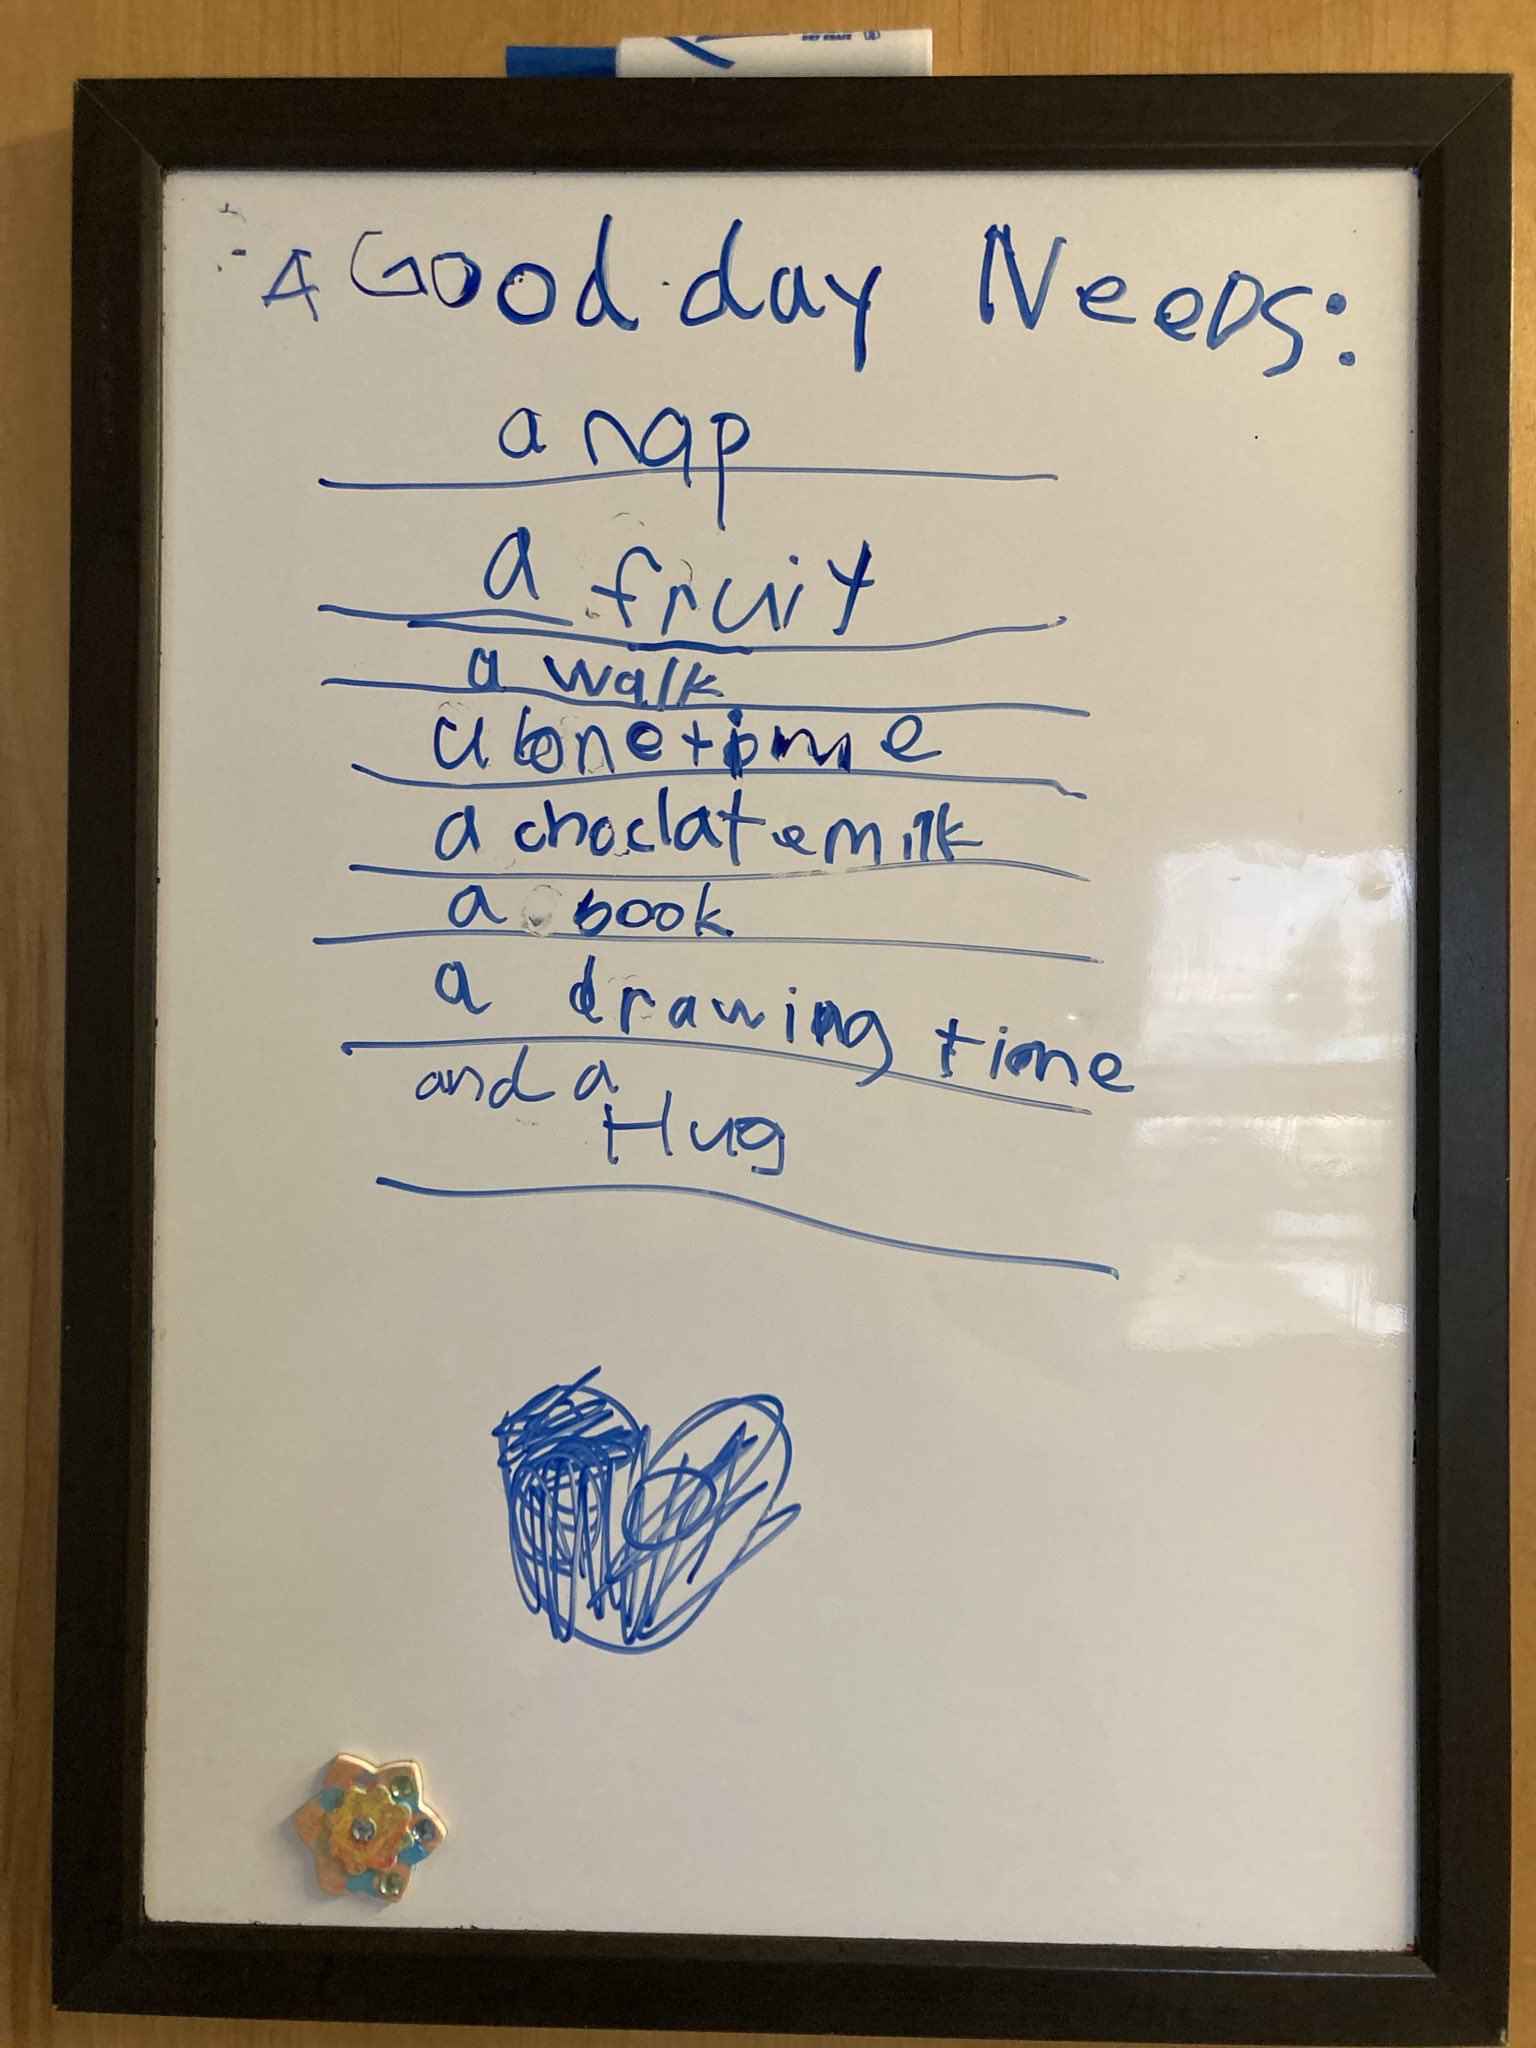 A Good day Needs:
a nap
a fruit
a walk
alone time
a choclate milk
a book
a drawing time
and a
Hug